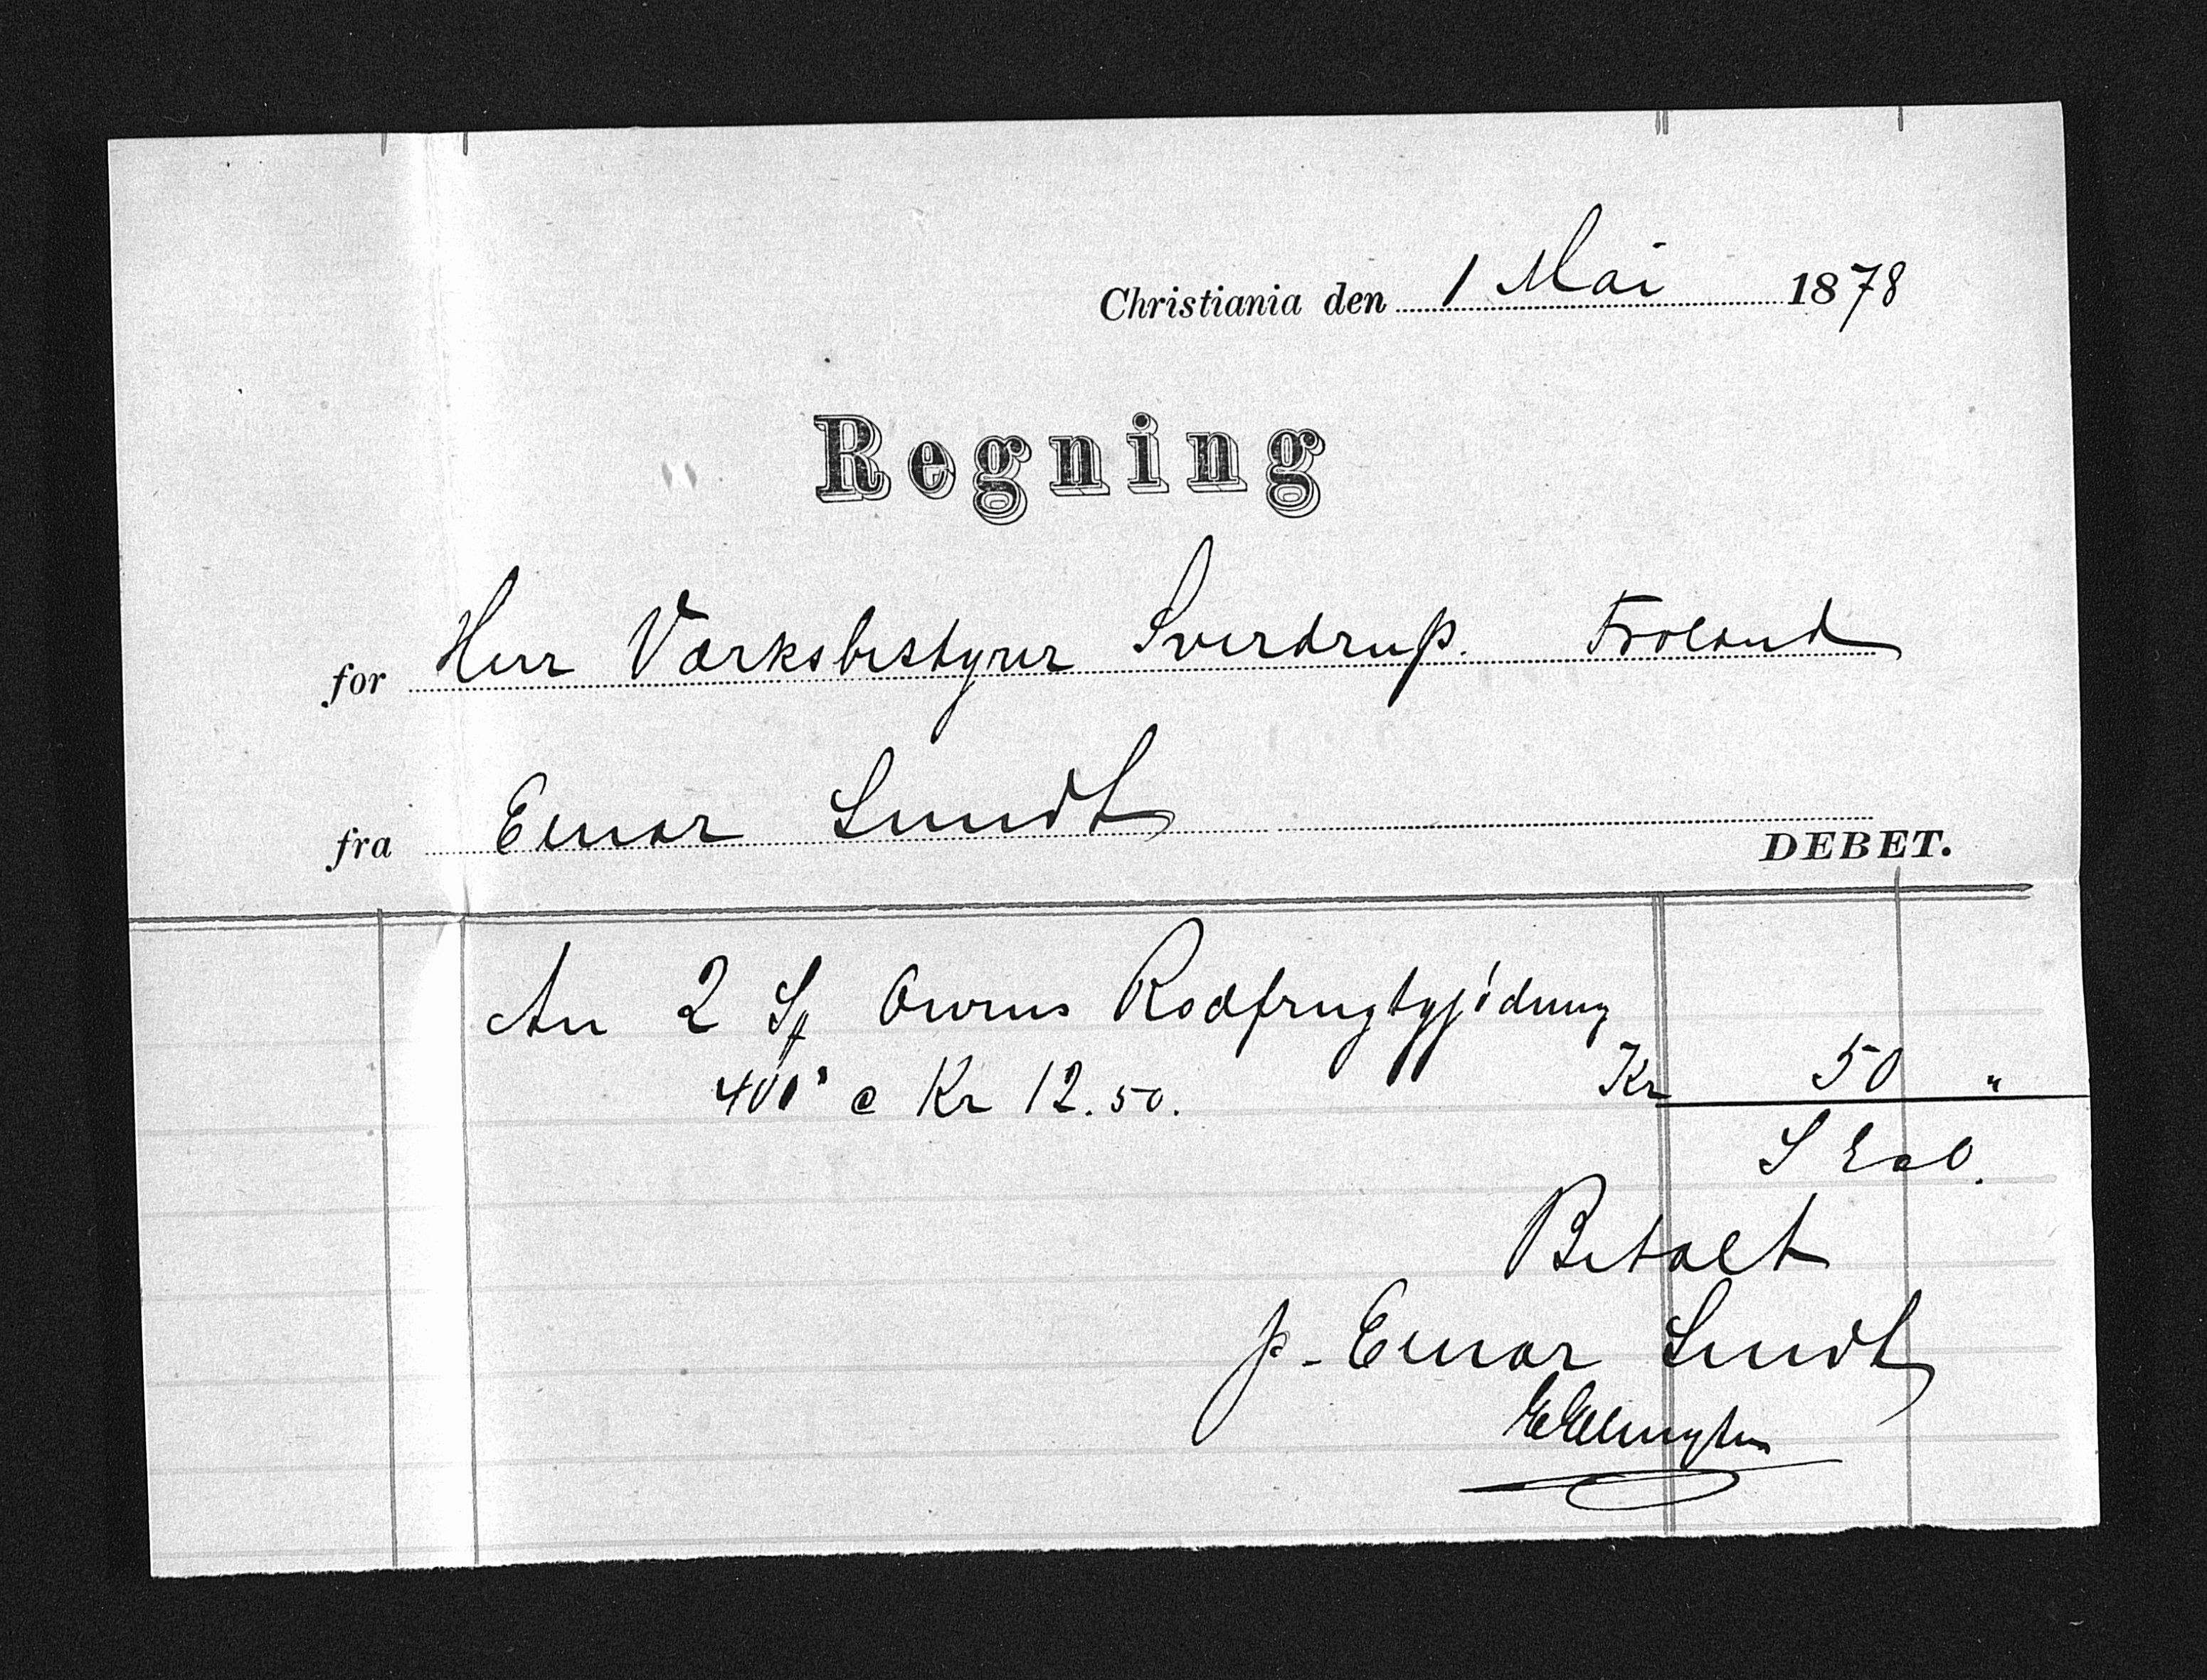 Christiania den 1 Mai 1878
Regning
for Herr Værksbestyrer Sverdrup. Froland
fra Einar Lundt
DEBET.
An 2 Sk Owens Rodfrugtgjödning
400 a Kr 12.50. Kr 50 "
S E & O.
Betalt
p. Einar Lundt